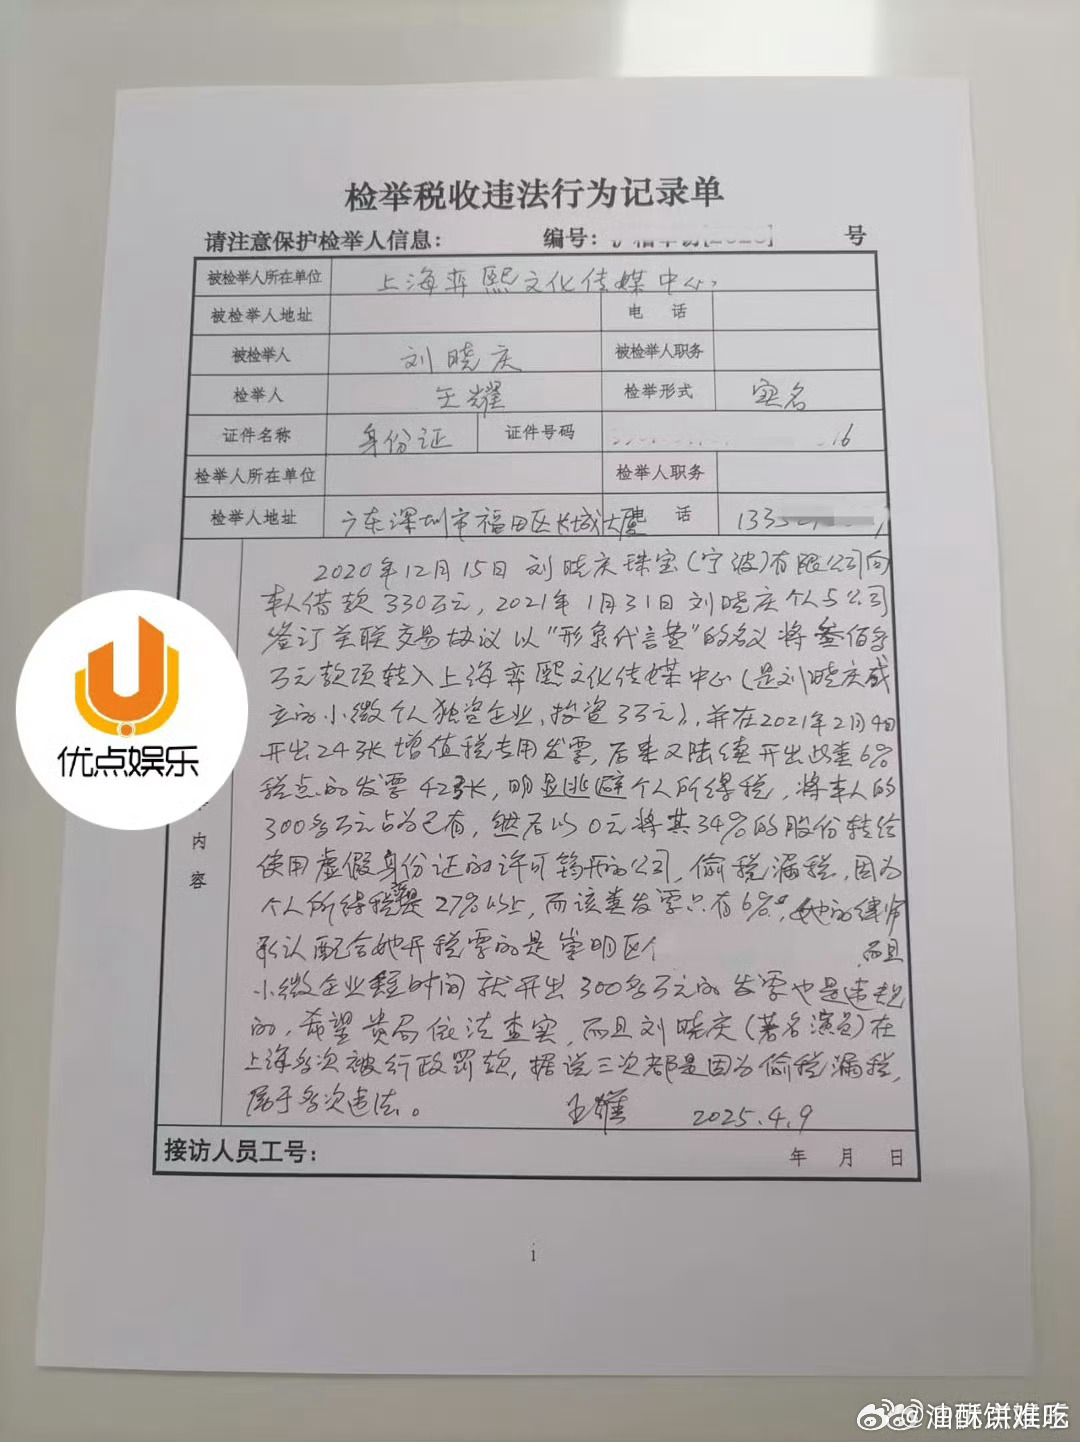 检举税收违法行为记录单
请注意保护检举人信息： 编号： 号
被检举人所在单位 上海弈熙文化传媒中心
被检举人地址 电 话
被检举人 刘晓庆 被检举人职务
检举人 王耀 检举形式 实名
证件名称 身份证 证件号码 16
检举人所在单位 检举人职务
检举人地址 广东深圳市福田区长城大厦 电 话 133
2020年12月15日刘晓庆珠宝(宁波)有限公司向
本人借款330万元，2021年1月31日刘晓庆个人与公司
签订关联交易协议以“形象代言费”的名义将叁佰多
万元款项转入上海弈熙文化传媒中心(是刘晓庆成
立的小微个人独资企业，投资3万元)，并在2021年2月4日
开出24张增值税专用发票，后来又陆续开出此类6%
税点的发票42张，明显逃避个人所得税，将本人的
300多万元占为己有，然后以0元将其34%的股份转给
使用虚假身份证的许可筠开的公司，偷税漏税，因为
个人所得税是27%以上，而该类发票只有6%，她的律师
承认配合她开税票的是崇明区个 而且
小微企业短时间就开出300多万元的发票也是违规
的，希望贵局依法查实，而且刘晓庆(著名演员)在
上海多次被行政罚款，据说三次都是因为偷税漏税，
属于多次违法。 王耀 2025.4.9
内
容
接访人员工号： 年 月 日
i
优点娱乐
@油酥饼难吃